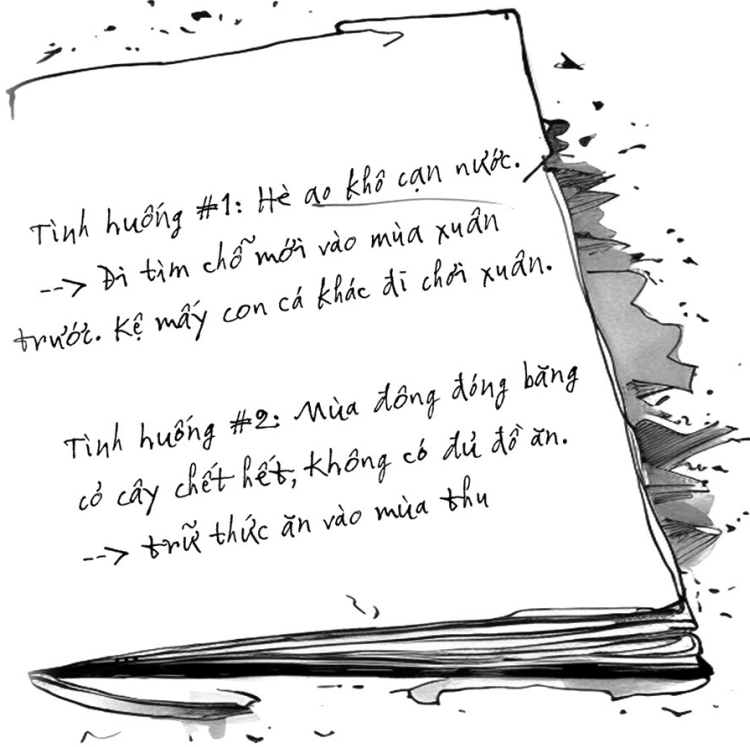 Tình huống #1: Hè ao khô cạn nước.
--> Đi tìm chỗ mới vào mùa xuân
trước. Kệ mấy con cá khác đi chơi xuân.
Tình huống #2: Mùa đông đóng băng
cỏ cây chết hết, không có đủ đồ ăn.
--> trữ thức ăn vào mùa thu